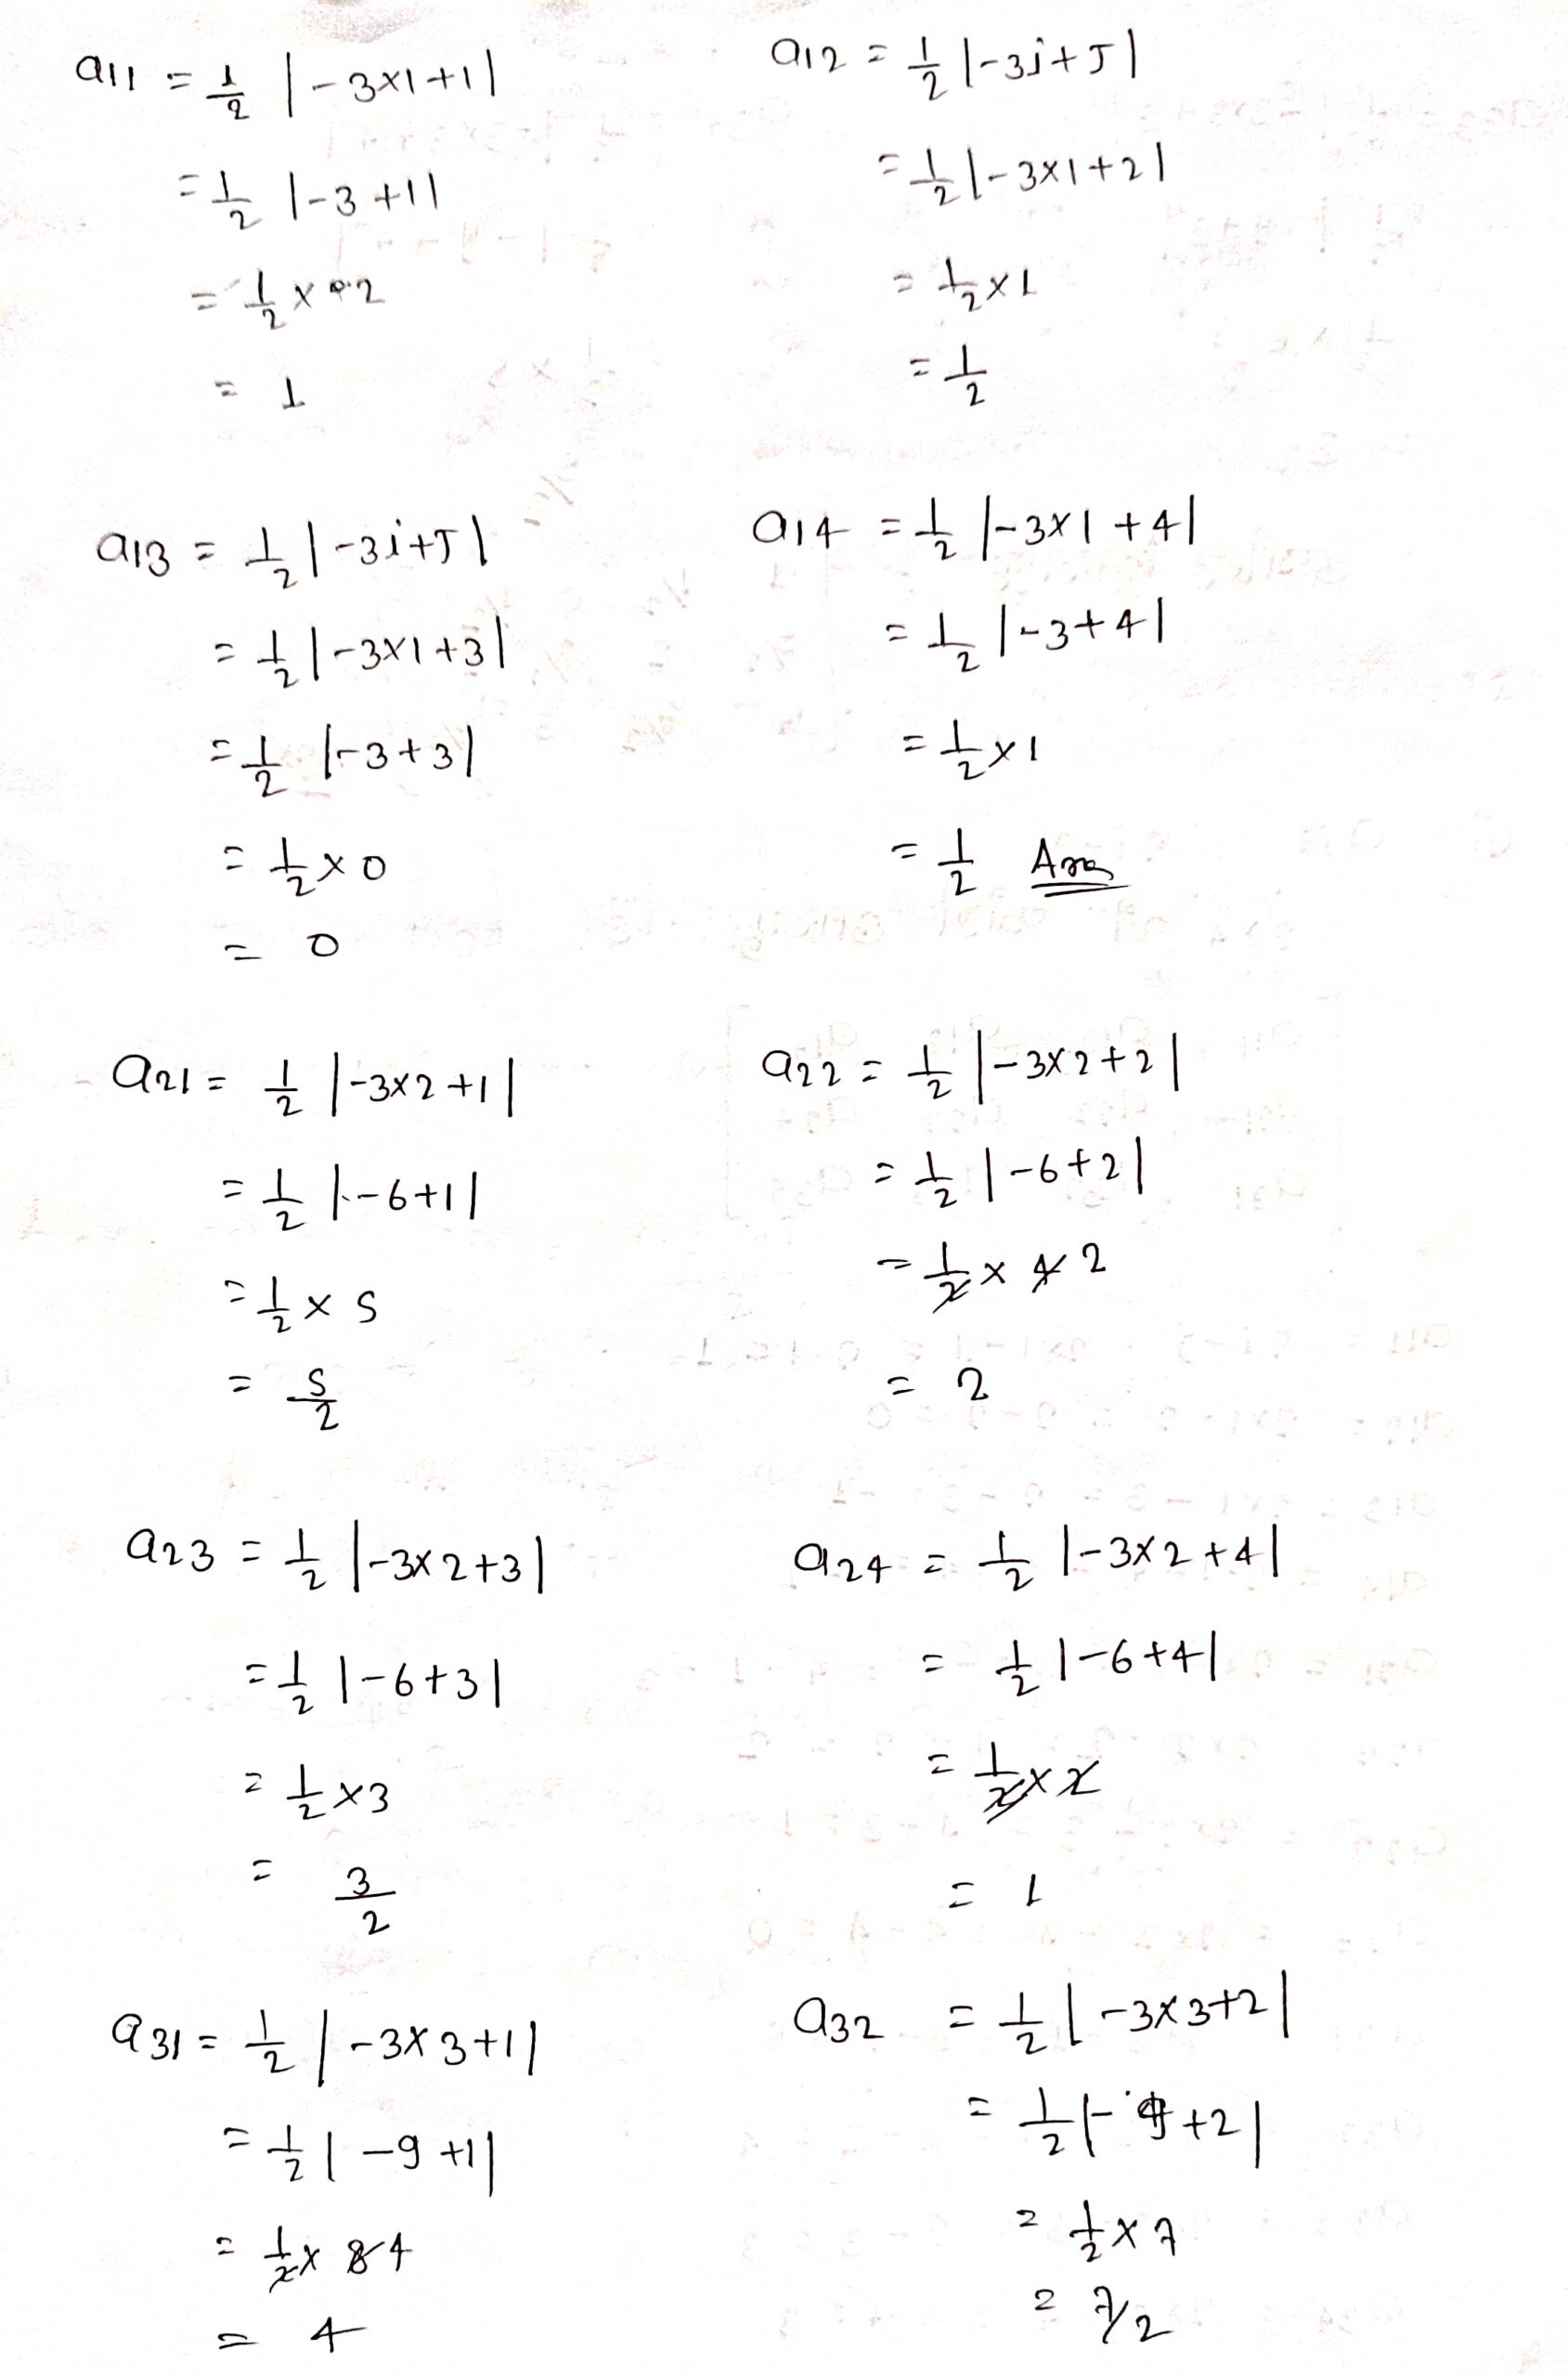 a11 = 1/2 |-3×1+1|
= 1/2 |-3+1|
= 1/2 × 2
= 1
a12 = 1/2 |-3i+J|
= 1/2 |-3×1+2|
= 1/2 ×1
= 1/2
a13 = 1/2 |-3i+J|
= 1/2 |-3×1+3|
= 1/2 |-3+3|
= 1/2 × 0
= 0
a14 = 1/2 |-3×1+4|
= 1/2 |-3+4|
= 1/2 ×1
= 1/2 Ans
a21 = 1/2 |-3×2+1|
= 1/2 |-6+1|
= 1/2 × 5
= 5/2
a22 = 1/2 |-3×2+2|
= 1/2 |-6+2|
= 1/2 × 4 2
= 2
a23 = 1/2 |-3×2+3|
= 1/2 |-6+3|
= 1/2 ×3
= 3/2
a24 = 1/2 |-3×2+4|
= 1/2 |-6+4|
= 1/2 × 2
= 1
a31 = 1/2 |-3×3+1|
= 1/2 |-9+1|
= 1/2 × 8 4
= 4
a32 = 1/2 |-3×3+2|
= 1/2 |-9+2|
= 1/2 × 7
= 7/2